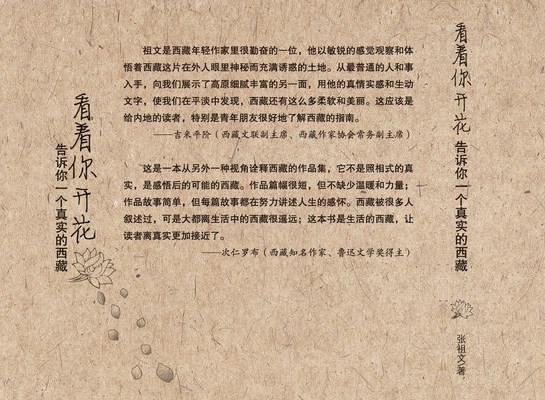 看着你开花
告诉你一个真实的西藏
祖文是西藏年轻作家里很勤奋的一位，他以敏锐的感觉观察和体
悟着西藏这片在外人眼里神秘而充满诱惑的土地。从最普通的人和事
入手，向我们展示了高原细腻丰富的另一面，用他的真情实感和生动
文字，使我们在平淡中发现，西藏还有这么多柔软和美丽。这应该是
给内地的读者，特别是青年朋友很好地了解西藏的指南。
——吉米平阶（西藏文联副主席、西藏作家协会常务副主席）
这是一本从另外一种视角诠释西藏的作品集，它不是照相式的真
实，是感悟后的可能的西藏。作品篇幅很短，但不缺少温暖和力量；
作品故事简单，但每篇故事都在努力讲述人生的感怀。西藏被很多人
叙述过，可是大都离生活中的西藏很遥远；这本书是生活的西藏，让
读者离真实更加接近了。
——次仁罗布（西藏知名作家、鲁迅文学奖得主）
看着你开花
告诉你一个真实的西藏
张祖文/著